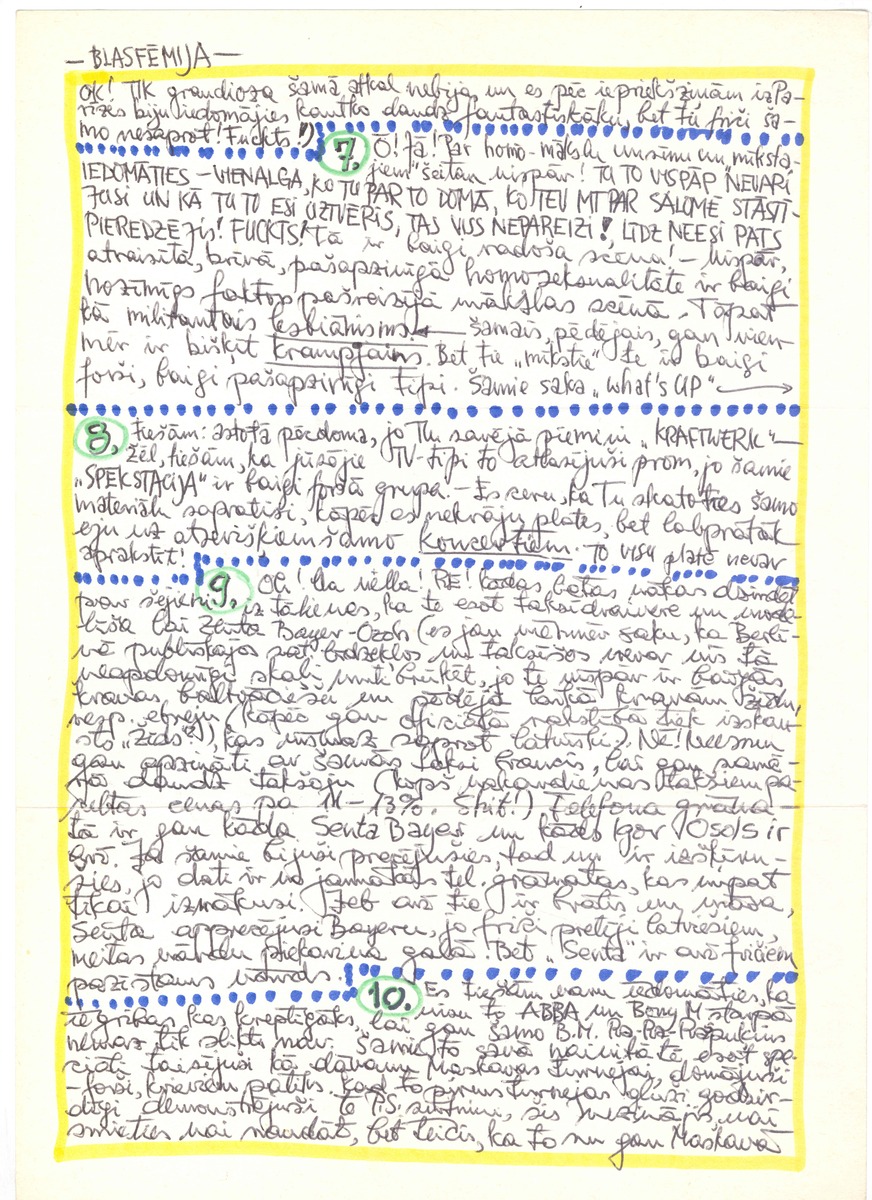 — BLASFĒMIJA —
OK! TIK grandioza šamā atkal nebija, un es pēc iepriekšzinām iz Pa-
rīzes biju iedomājies kautko daudz fantastiskāku, bet tie friči ša-
mo nesaprot! Fuckts!)
7. Ō! Jā! Par homo-mākslu un sīnu un mīksta-
jiem šeitan vispār! TU TO VISPĀR NEVARI
IEDOMĀTIES – VIENALGA, KO TU PAR TO DOMĀ, KO TEV MT PAR SALOMĒ STĀSTĪ-
JUSI UN KĀ TU TO ESI UZTVĒRIS, TAS VISS NEPAREIZI!, LĪDZ NEESI PATS
PIEREDZĒJIS! FUCKTS! Tā ir baigi radoša scēna! – Vispār,
atraisīta, brīvā, pašapzinīgā homoseksualitāte ir baigi
nozīmīgs faktors pašreizējā mākslas scēnā. Tāpat
kā militantais lesbiānisms. ← šamais, pēdējais, gan vien-
mēr ir bišķīt krampjains. Bet tie „mīkstie" te ir baigi
forši, baigi pašapzinīgi tipi. Šamie saka „what's UP" →
8. tiešām: astotā pēcdoma, jo Tu savējā piemini „KRAFTWERK" –
žēl, tiešām, ka jūsējie TV-tipi to atlasījuši prom, jo šamie
„SPEKSTĀCIJA" ir baigi foršā grupa. – Es ceru, ka Tu skatoties šamo
materiālu sapratīsi, kāpēc es nekrāju plates, bet labprātāk
eju uz atsevišķiem šamo koncertiem. To visu platē nevar
aprakstīt!
9. Oh! Va vella! RE! kādas batas nākas dzirdēt
par šejieni,
ka te esot taksīdraivere un mode-
Zenta Bayer-Ozols (es jau vienmēr saku, ka Berlī-
nē publiskajos satiksedzekļos un taksīšos nevar vis tā
neapdomīgi skaļi muti brūķēt, jo te vispār ir baigās
kravas baltvācieši un pēdējā laikā krievu žīdu,
resp. ebreju (kāpēc gan oficiālā rakstībā tiek izskau-
sts „žīds"?), kas vismaz saprot latviski). Nē! Neesmu
gan apzināti ar šamās taksi braucis, lai gan samē-
rā daudz taksoju (kopš vakardienas taksiem pa-
celtas cenas pa 11–13%. Shit!) Telefona grāma-
tā ir gan kāda Senta Bayer un kāds Igor Osols ir
arī. Ja šamie bijuši precējušies, tad nu ir izšķīru-
šies, jo dati ir no jaunākās tel. grāmatas, kas nupat
tikai iznākusi. Jeb arī tie ir brālis un māsa,
Senta apprecējusi Bayeru, jo friči pretēji latviešiem,
meitas vārdu piekarina galā. Bet „Senta" ir arī fričiem
pazīstams vārds.
10. Es tiešām varu iedomāties, ka
visu to ABBA un Bony M starpā
ie grīkas kas kreptīgāks, lai gan šamo B.M. Ra-Ra-Rasputins
nemaz tik slikts nav. Šamie to savā naivitātē esot spe-
ciāli taisījuši kā dāvanu Maskavas turnejai, domājuši
– forši, krieviem patiks. Kad to pirms turnejas gluži godsir-
dīgi demonstrējuši te P.S. sūtnim, šis nezinājis, vai
smieties vai raudāt, bet teicis, ka to nu gan Maskavā